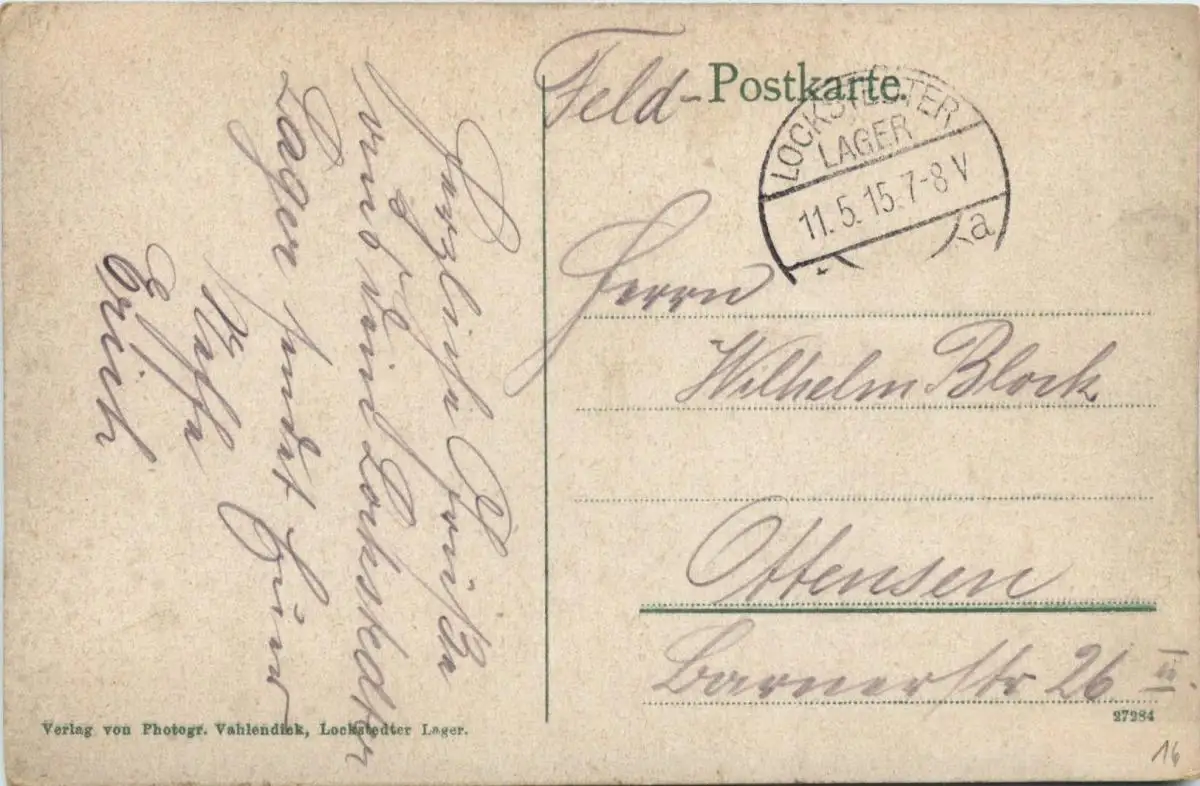 Herzliche Grüße
aus dem Lockstedter
Lager sendet Euer
Neffe
Erich
Feld-Postkarte.
LOCKSTEDTER
LAGER
11.5.15.7-8 V
a
Herrn
Wilhelm Block
Ottensen
Barnerstr 26 II
27284
Verlag von Photogr. Vahlendick, Lockstedter Lager.
16